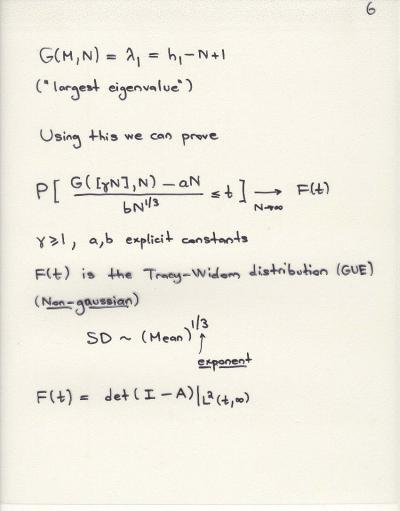 6
G(M,N) = λ₁ = h₁-N+1
("largest eigenvalue")
Using this we can prove
P[ (G([γN],N) - aN) / (bN^{1/3}) ≤ t ] →_{N→∞} F(t)
γ≥1, a,b explicit constants
F(t) is the Tracy-Widom distribution (GUE)
(Non-gaussian)
SD ~ (Mean)^{1/3}
↑
exponent
F(t) = det(I - A)|_{L²(t,∞)}